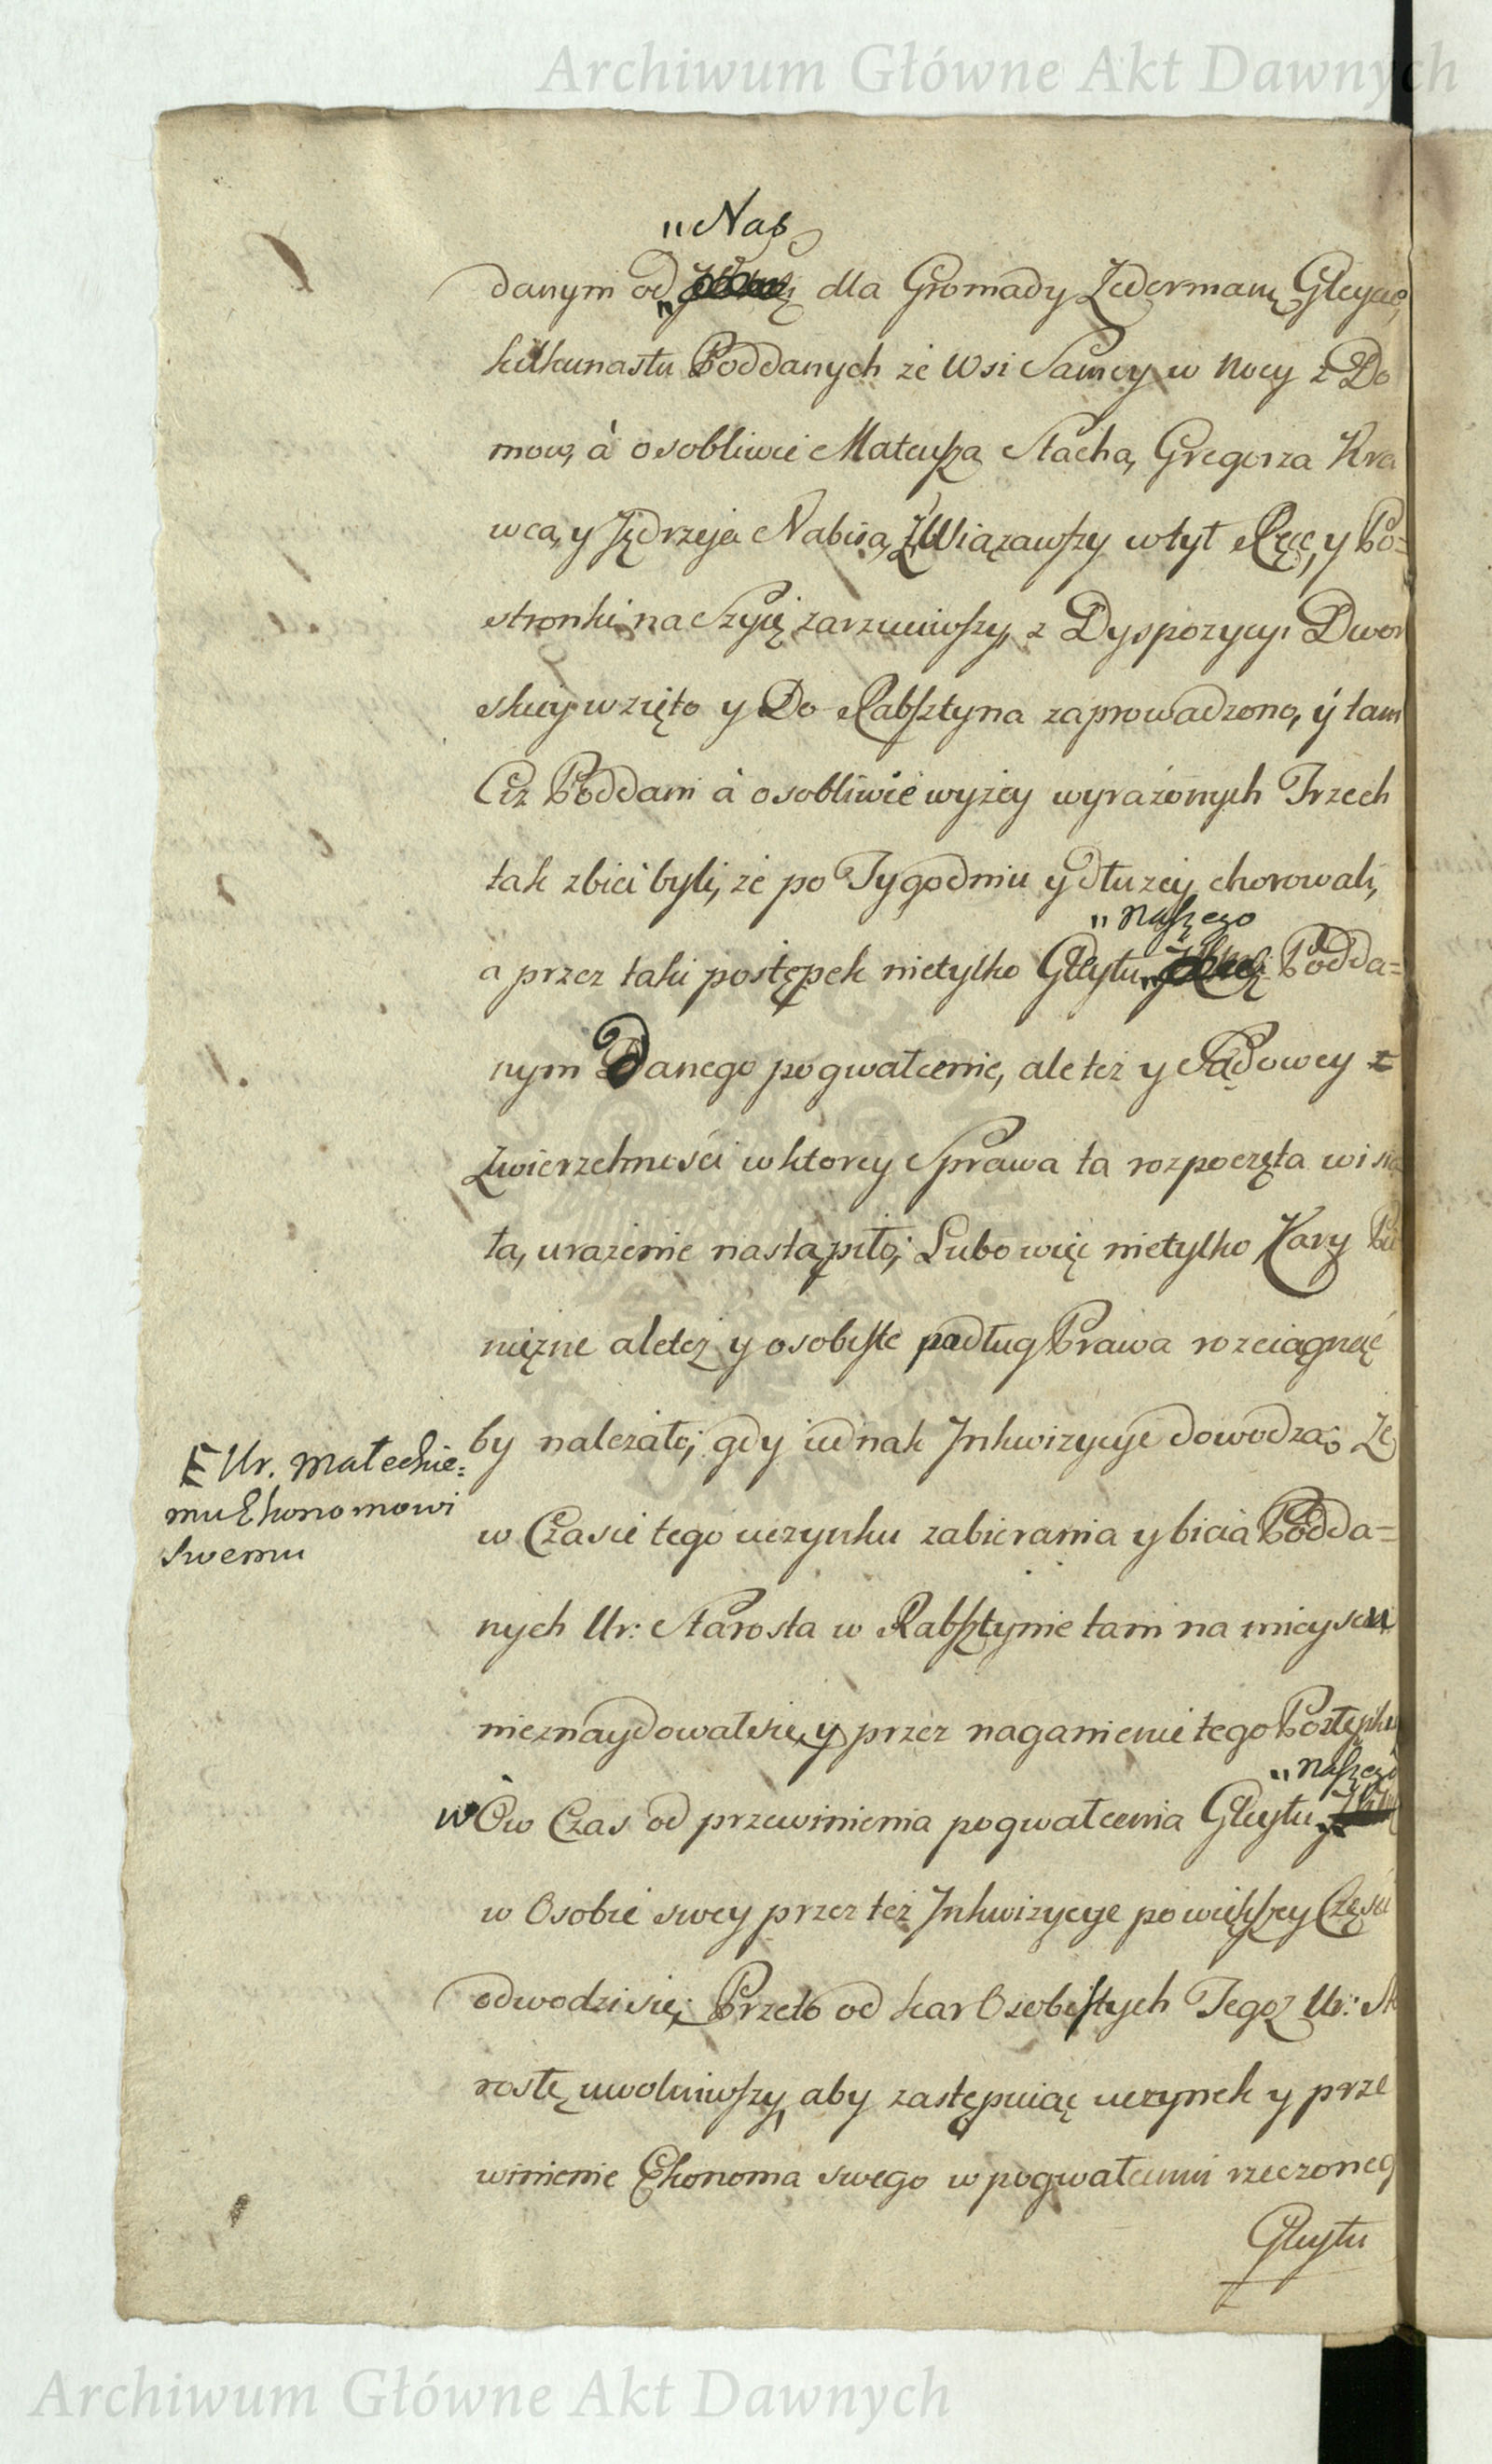 Archiwum Główne Akt Dawnych
"Nas
danym od dla Gromady Zedermanu Gleycie,
kilkunastu Poddanych ze Wsi Samey w Nocy z Do
mow, à osobliwie Mateusza Stacha, Gregorza Kra
wca, y Jędrzeja Nabisa, ZWiązawszy wtył Ręce, y Po=
stronki na Szyię zarzuciwszy, z Dyspozycyi Dwor
skiey wzięto y Do Rabsztyna zaprowadzono, ý tam
Ciz Poddani à osobliwie wyżey wyrażonych Trzech
tak zbici byli, że po Tygodniu y dłużey chorowali,
"naszego
a przez taki postępek nietylko Gleytu Podda=
nym Danego pogwałcenie, ale też y Sądowey
Zwierzchności w ktorey Sprawa ta rozpoczęta wisia
ła, urażenie nastąpiło; Lubo więc nietylko Kary Pie
niężne ale też y osobiste podług Prawa rozciągnąć
by należało; gdy iednak Inkwizycye dowodzą; Że
E Ur. Małechie=
mu Ekonomowi
swemu
w Czasie tego uczynku zabierania y bicia Podda=
nych Ur: Starosta w Rabsztynie tam na mieyscu
nieznaydował się, y przez naganienie tego Postępku
"naszego
w Ów Czas od przewinienia pogwałcenia Gleytu
w Osobie swey przez też Inkwizycye po większey Częsci
odwodzi się; Przeto od kar Osobistych Tegoż Ur: Sta
rostę uwolniwszy, aby zastępuiąc uczynek y prze
winienie Ekonoma swego w pogwałceniu rzeczoneg
Gleytu
Archiwum Główne Akt Dawnych